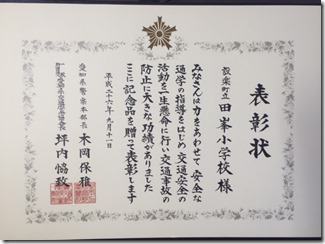 表彰状
設楽町立 田峯小学校様
みなさんは力をあわせて安全な
通学の指導をはじめ交通安全の
活動を一生懸命に行い交通事故の
防止に大きな功績がありました
ここに記念品を贈って表彰します
平成二十六年九月十一日
愛知県警察本部長 木岡保雅
坪内恊致